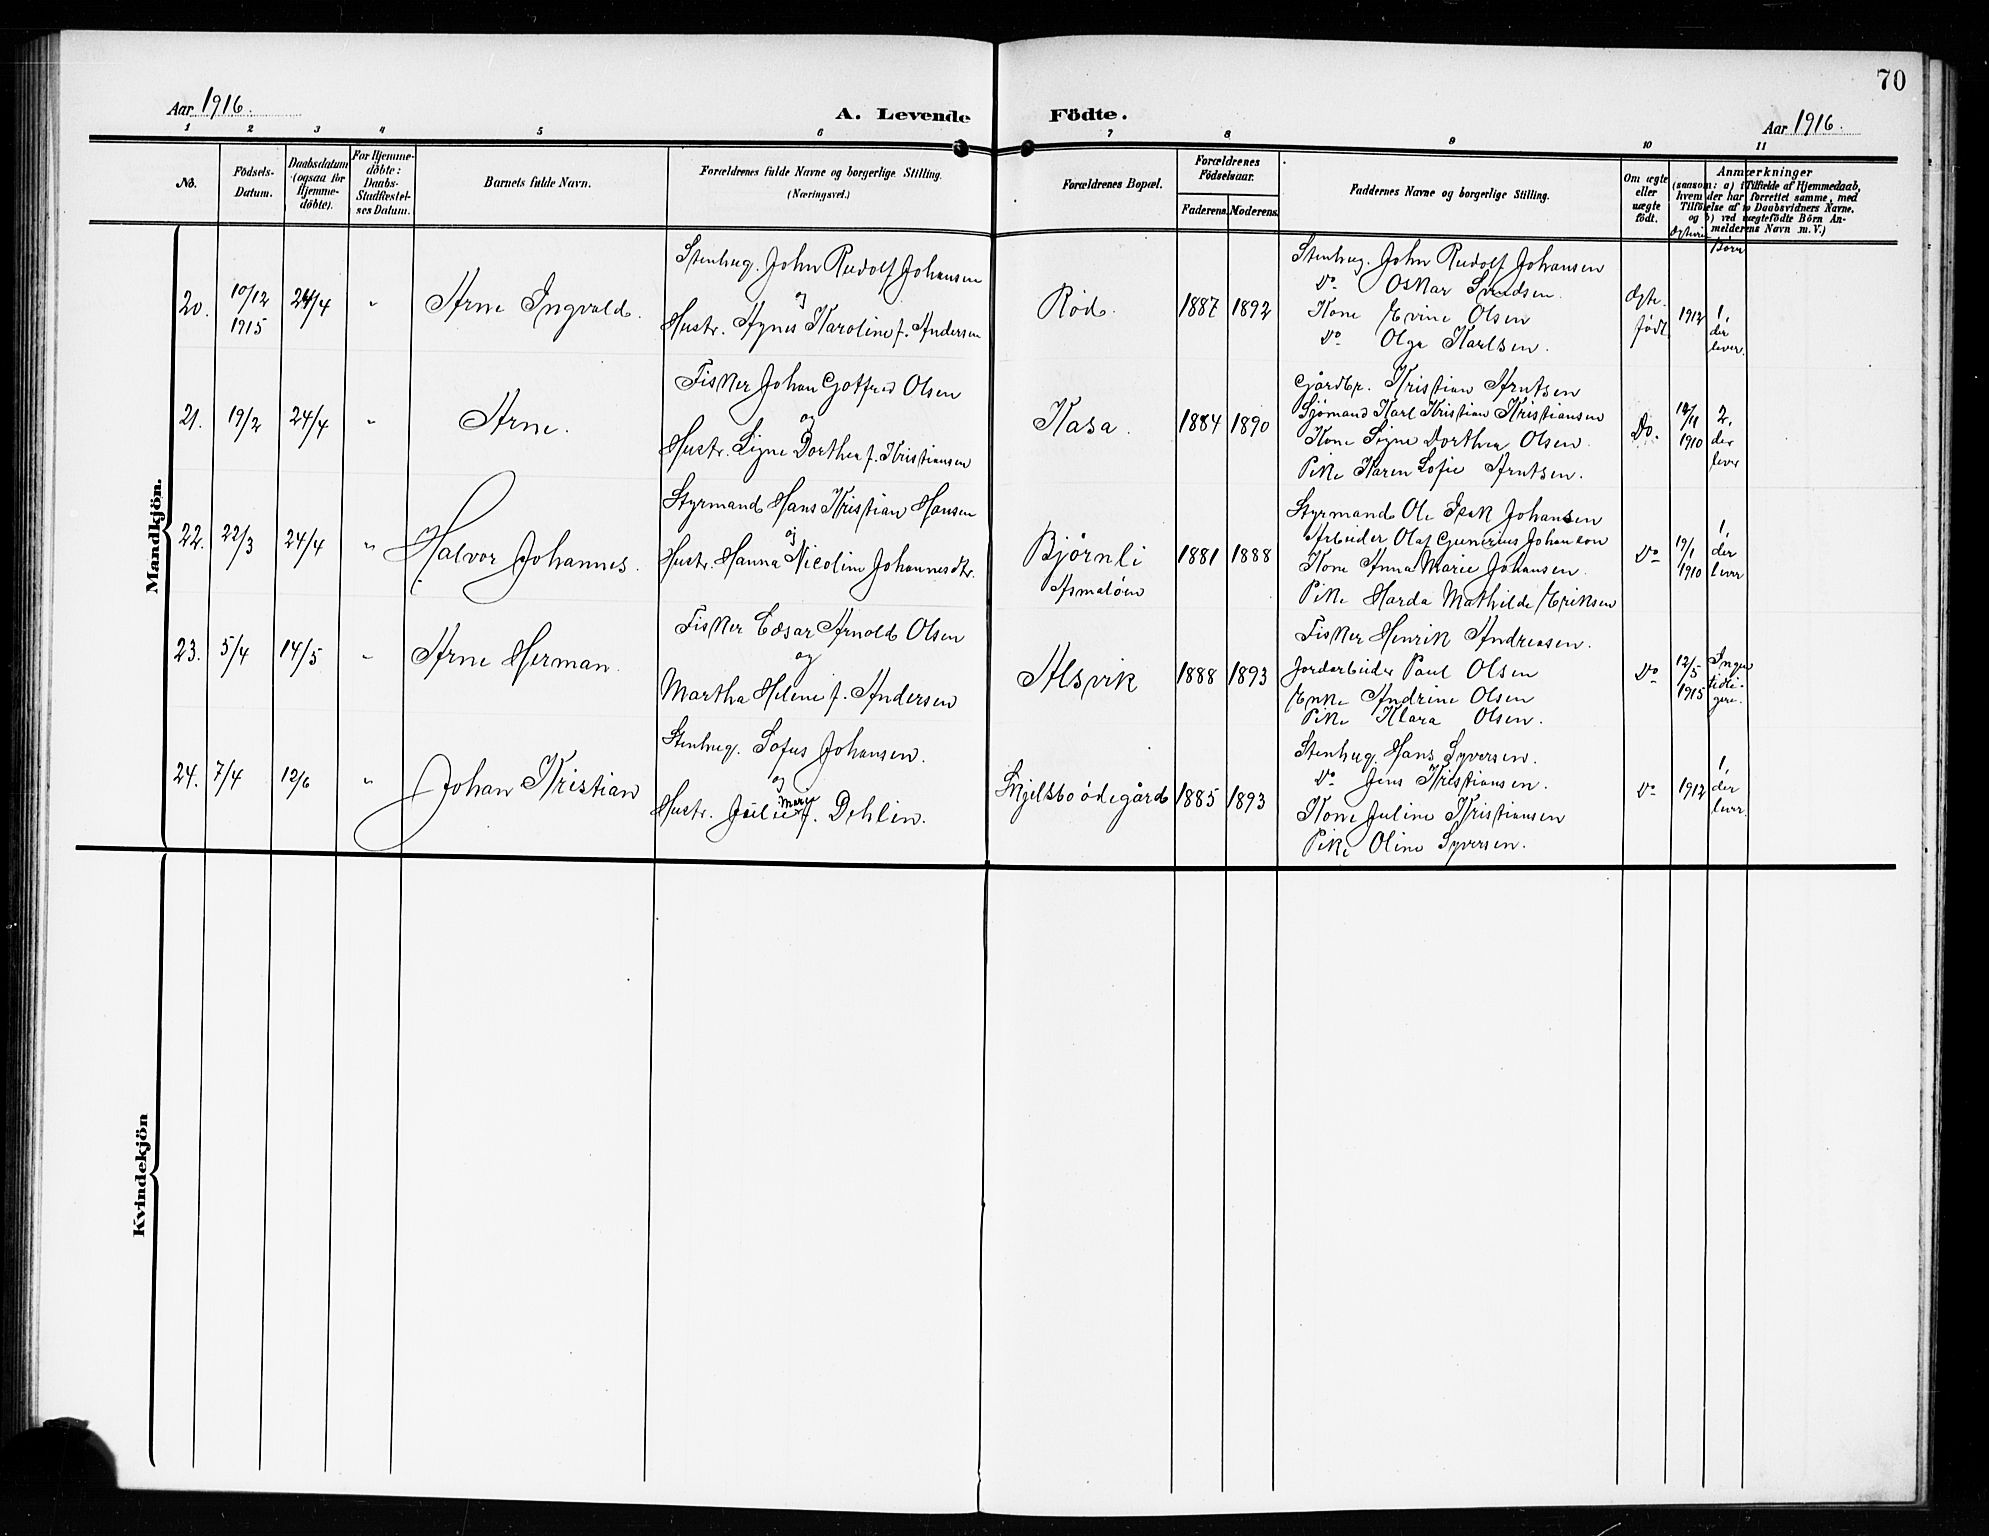 70
Aar 1916.
A. Levende Födte.
Aar 1916.
1 2 3 4 5 6 7 8 9 10 11
No.
Födsels-Datum.
Daabsdatum (ogsaa for Hjemme-döbte).
For Hjemme-döbte: Daabs-Stadfæstel-ses Datum.
Barnets fulde Navn.
Forældrenes fulde Navne og borgerlige Stilling.
(Næringsvei.)
Forældrenes Bopæl.
Forældrenes Födselsaar.
Faderens. Moderens.
Faddernes Navne og borgerlige Stilling.
Om ægte eller uægte födt.
Anmærkninger
(saasom: a) i Tilfælde af Hjemmedaab,
hvem der har forrettet samme, med
Tilföielse af to Daabsvidners Navne.
og b) ved uægtefödte Börn An-
melderens Navn m. V.)
Børn
Mandkjön.
20. 10/12 1915 24/4 " Arne Ingvald.
Stenhug. John Rudolf Johansen
og
Hustr. Agnes Karoline f. Andersen
Rød. 1887 1892
Stenhug. John Rudolf Johansen
Do Oskar Svendsen.
Kone Evine Olsen
Do Olga Karlsen.
Ægte født 1912 1, der lever.
21. 19/2 24/4 " Arne.
Fisker Johan Gotfred Olsen
og
Hustr. Signe Dorthea f. Kristiansen
Kasa. 1884 1890
Gårdbr. Kristian Arntsen
Sjømand Karl Kristian Kristiansen
Kone Signe Dorthea Olsen.
Pike Karen Sofie Arntsen.
Do. 12/11 1910 2, der lever
22. 22/3 24/4 " Halvor Johannes.
Styrmand Hans Kristian Hansen
og
Hustr. Hanna Nicoline Johannesdtr.
Bjørnli
Asmaløen
1881 1888
Styrmand Ole Isak Johansen
Arbeider Olaf Gunerius Johanson
Kone Anna Marie Johansen.
Pike Harda Mathilde Eriksen
Do 19/1 1910 1, der lever
23. 5/4 14/5 " Arne Herman.
Fisker Cæsar Arnold Olsen
og
Martha Helene f. Andersen
Alsvik 1888 1893
Fisker Henrik Andreasen.
Jordarbeider Paul Olsen
Enke Andrine Olsen
Pike Klara Olsen.
Do 12/5 1915 Ingen tidli-gere.
24. 7/4 12/6 " Johan Kristian
Stenhug. Sofus Johansen.
og
Hustr. Julie Marie f. Dehlin.
Skjelsbo ødegård 1885 1893
Stenhug. Hans Syversen.
Do Jens Kristiansen.
Kone Juline Kristiansen
Pike Oline Syversen.
Do 1912 1, der lever.
Kvindekjön